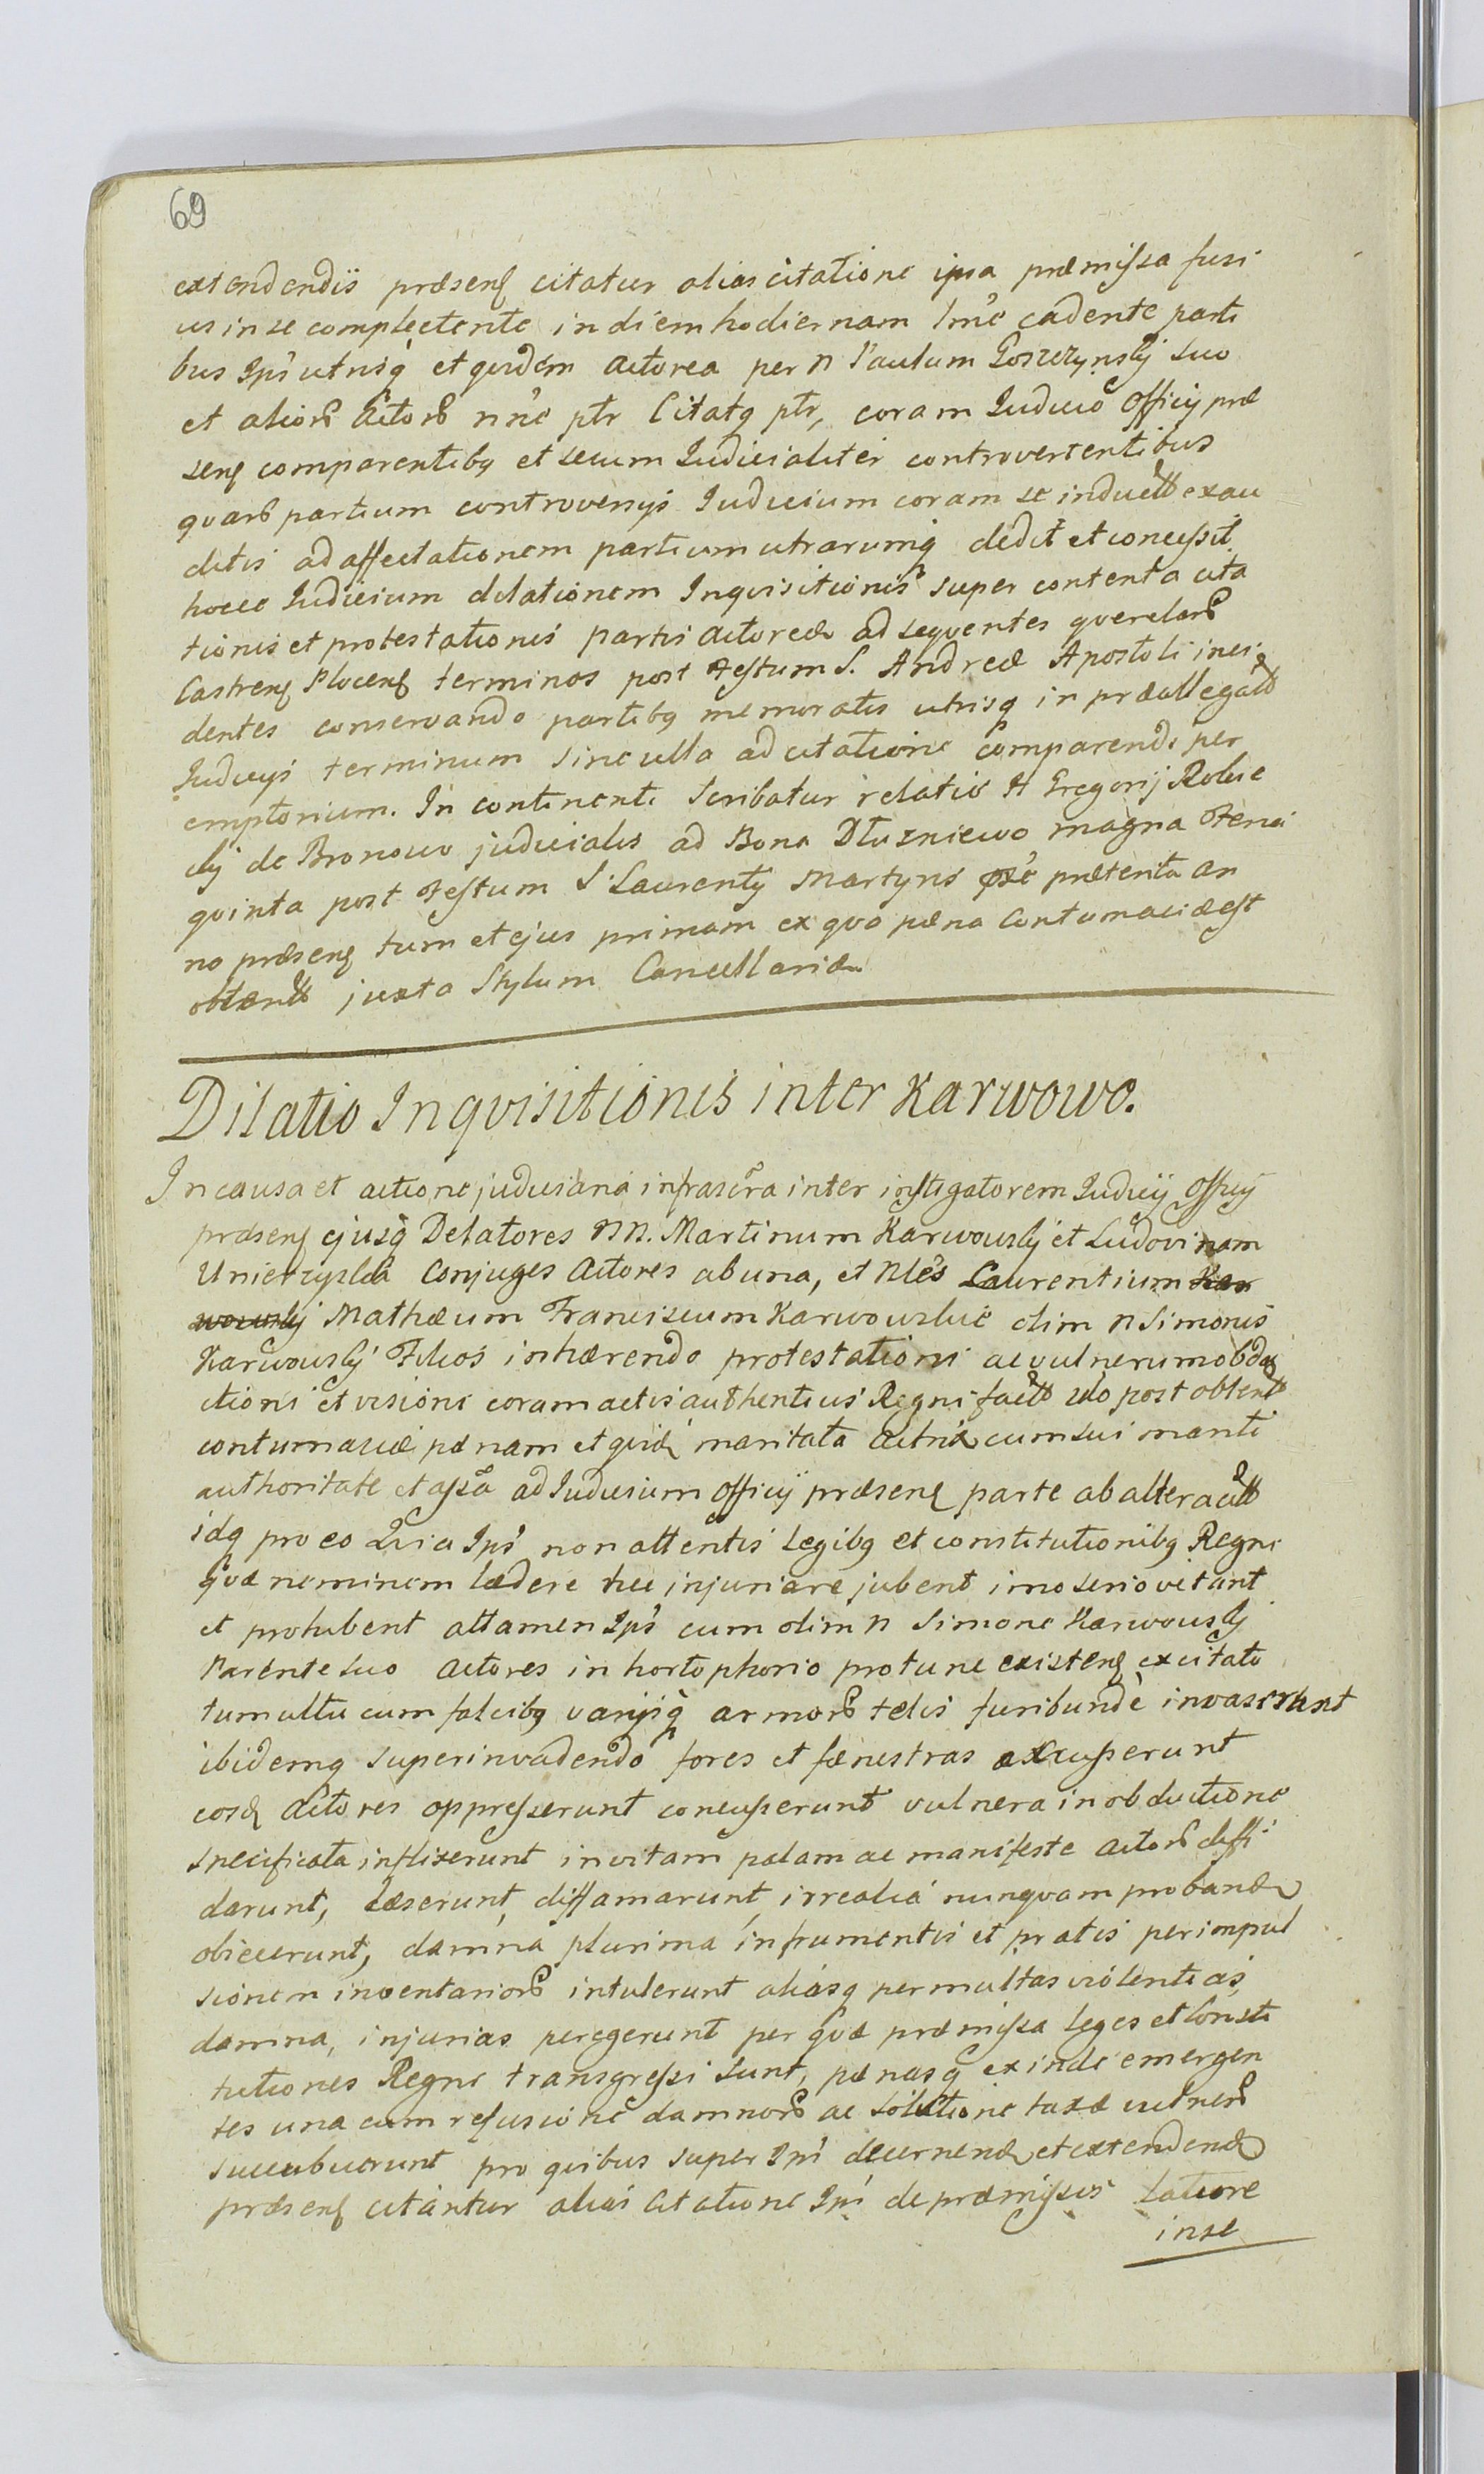 69
extendendis præsens citatur alias citatione ipsa præmissa fusi
us in se complectente in diem hodiernam lmẽ cadente parti
bus Ips utrisq et quidem actorea per N Paulum Goszczynskij suo
et alior Actor nñe ptr Citatq ptr, coram Judicio Officij præ
sens comparentibq et secum Judicialiter controvertentibus
quar partium controversijs Judicium coram se induct exau
ditis ad affectationem partium utrarumq dedit et concessit
hocce Judicium dilationem Inqvisitionis super contenta cita
tionis et protestationis partis actoreæ ad sequentes querelar
Castrens Plocens terminos post Festum S. Andreæ Apostoli inci
dentes conservando partibq memoratis utrisq in præallegat
Judicijs terminum sine ulla adcitatione comparendi per
emptorium. In continenti scribatur relatio H Gregorij Robic
kij de Bronowo judicialis ad Bona Dłuzniewo magna Feria
quinta post Festum S. Laurentij Martyris præterita an
no præsens tum et ejus primam ex quo pæna contumaciæ est
obtent juxta Stylum Cancellariæ
Dilatio Inqvisitionis inter Karwowo.
In causa et actione judiciaria infrascra inter instigatorem Judicij Officij
præsens ejusq Delatores NN. Martinum Karwouskij et Ludovinam
Unierzyska Conjuges Actores ab una, et Nles Laurentium Kar
wouskij Mathæum Franciscum Karwouskie olim N Simonis
Karwouskij Filios inhærendo protestationi ac vulnerum obdu
ctioni et visioni coram actis authenticis Regni fact post obtent
contumaciæ pænam et quid maritata Actrix cum sui mariti
authoritate et assa ad Judicium Officij præsens parte ab altera citt
idq pro eo Quia Ips non attentis Legibq et constitutionibq Regni
quæ neminem lædere nec injuriare jubent imo serio vetant
et prohibent attamen Ips cum olim N Simone Karwouskij
Parente suo Actores in horto phorio protunc existens excitato
tumultu cum falcibq varijsq armor telis furibundè invaserunt
ibidemq superinvadendo fores et fænestras excusserunt
eosq Actores oppresserunt concusserunt vulnera in obductione
specificata inflixerunt in vitam palam ac manifeste Actor diffi
darunt, læserunt, diffamarunt, irrealia nunquam probanda
obiecerunt, damna plurima in frumentis et pratis per impul
sionem inventarior intulerunt aliasq permultas violentias,
damna, injurias peregerunt per quæ præmissa Leges et Consti
tutiones Regni transgressi sunt, pænasq exinde emergen
tes una cum refusione damnor ac solutione taxæ vulner
succubuerunt pro quibus super Ips decernend et extendend
præsens citantur alias Citatione Ips de præmissis latiore
in se